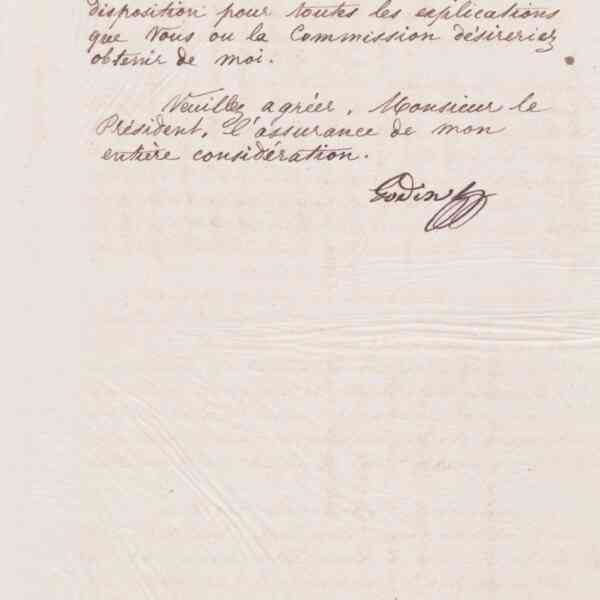 disposition pour toutes les explications
que Vous ou la Commission désireriez
obtenir de moi.
Veuillez agréer, Monsieur le
Président, l'assurance de mon
entière considération.
Godin